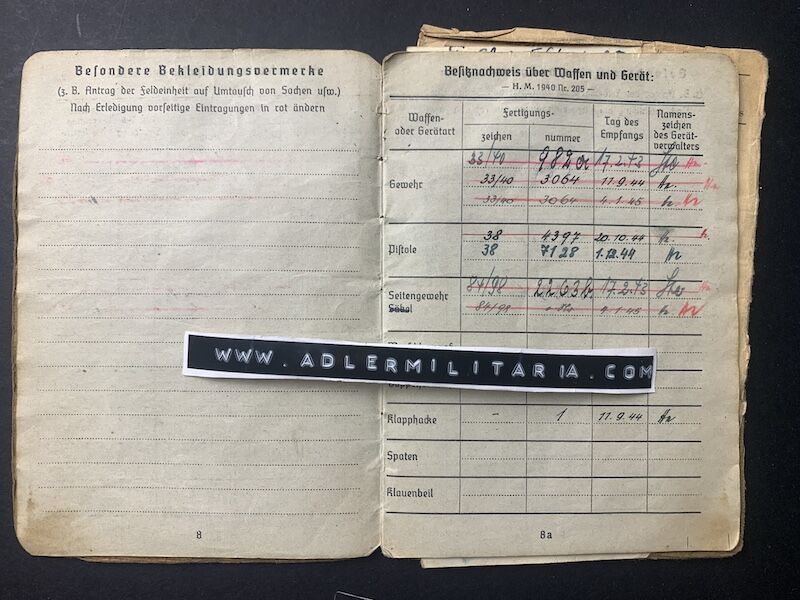 Besondere Bekleidungsvermerke
(z. B. Antrag der Feldeinheit auf Umtausch von Sachen usw.)
Nach Erledigung vorseitige Eintragungen in rot ändern
8
Besitznachweis über Waffen und Gerät:
— H. M. 1940 Nr. 205 —
Waffen- oder Gerätart Fertigungs- Tag des Empfangs Namens-zeichen des Gerät-verwalters
zeichen nummer
Gewehr
33/40 982a 17.2.43
33/40 3064 11.9.44
33/40 3064 4.1.45
Pistole
38 4397 20.10.44
38 7128 1.12.44
Seitengewehr
Säbel
84/98 17.2.43
84/98
WWW.ADLERMILITARIA.COM
Klapphacke - 1 11.9.44
Spaten
Klauenbeil
8a